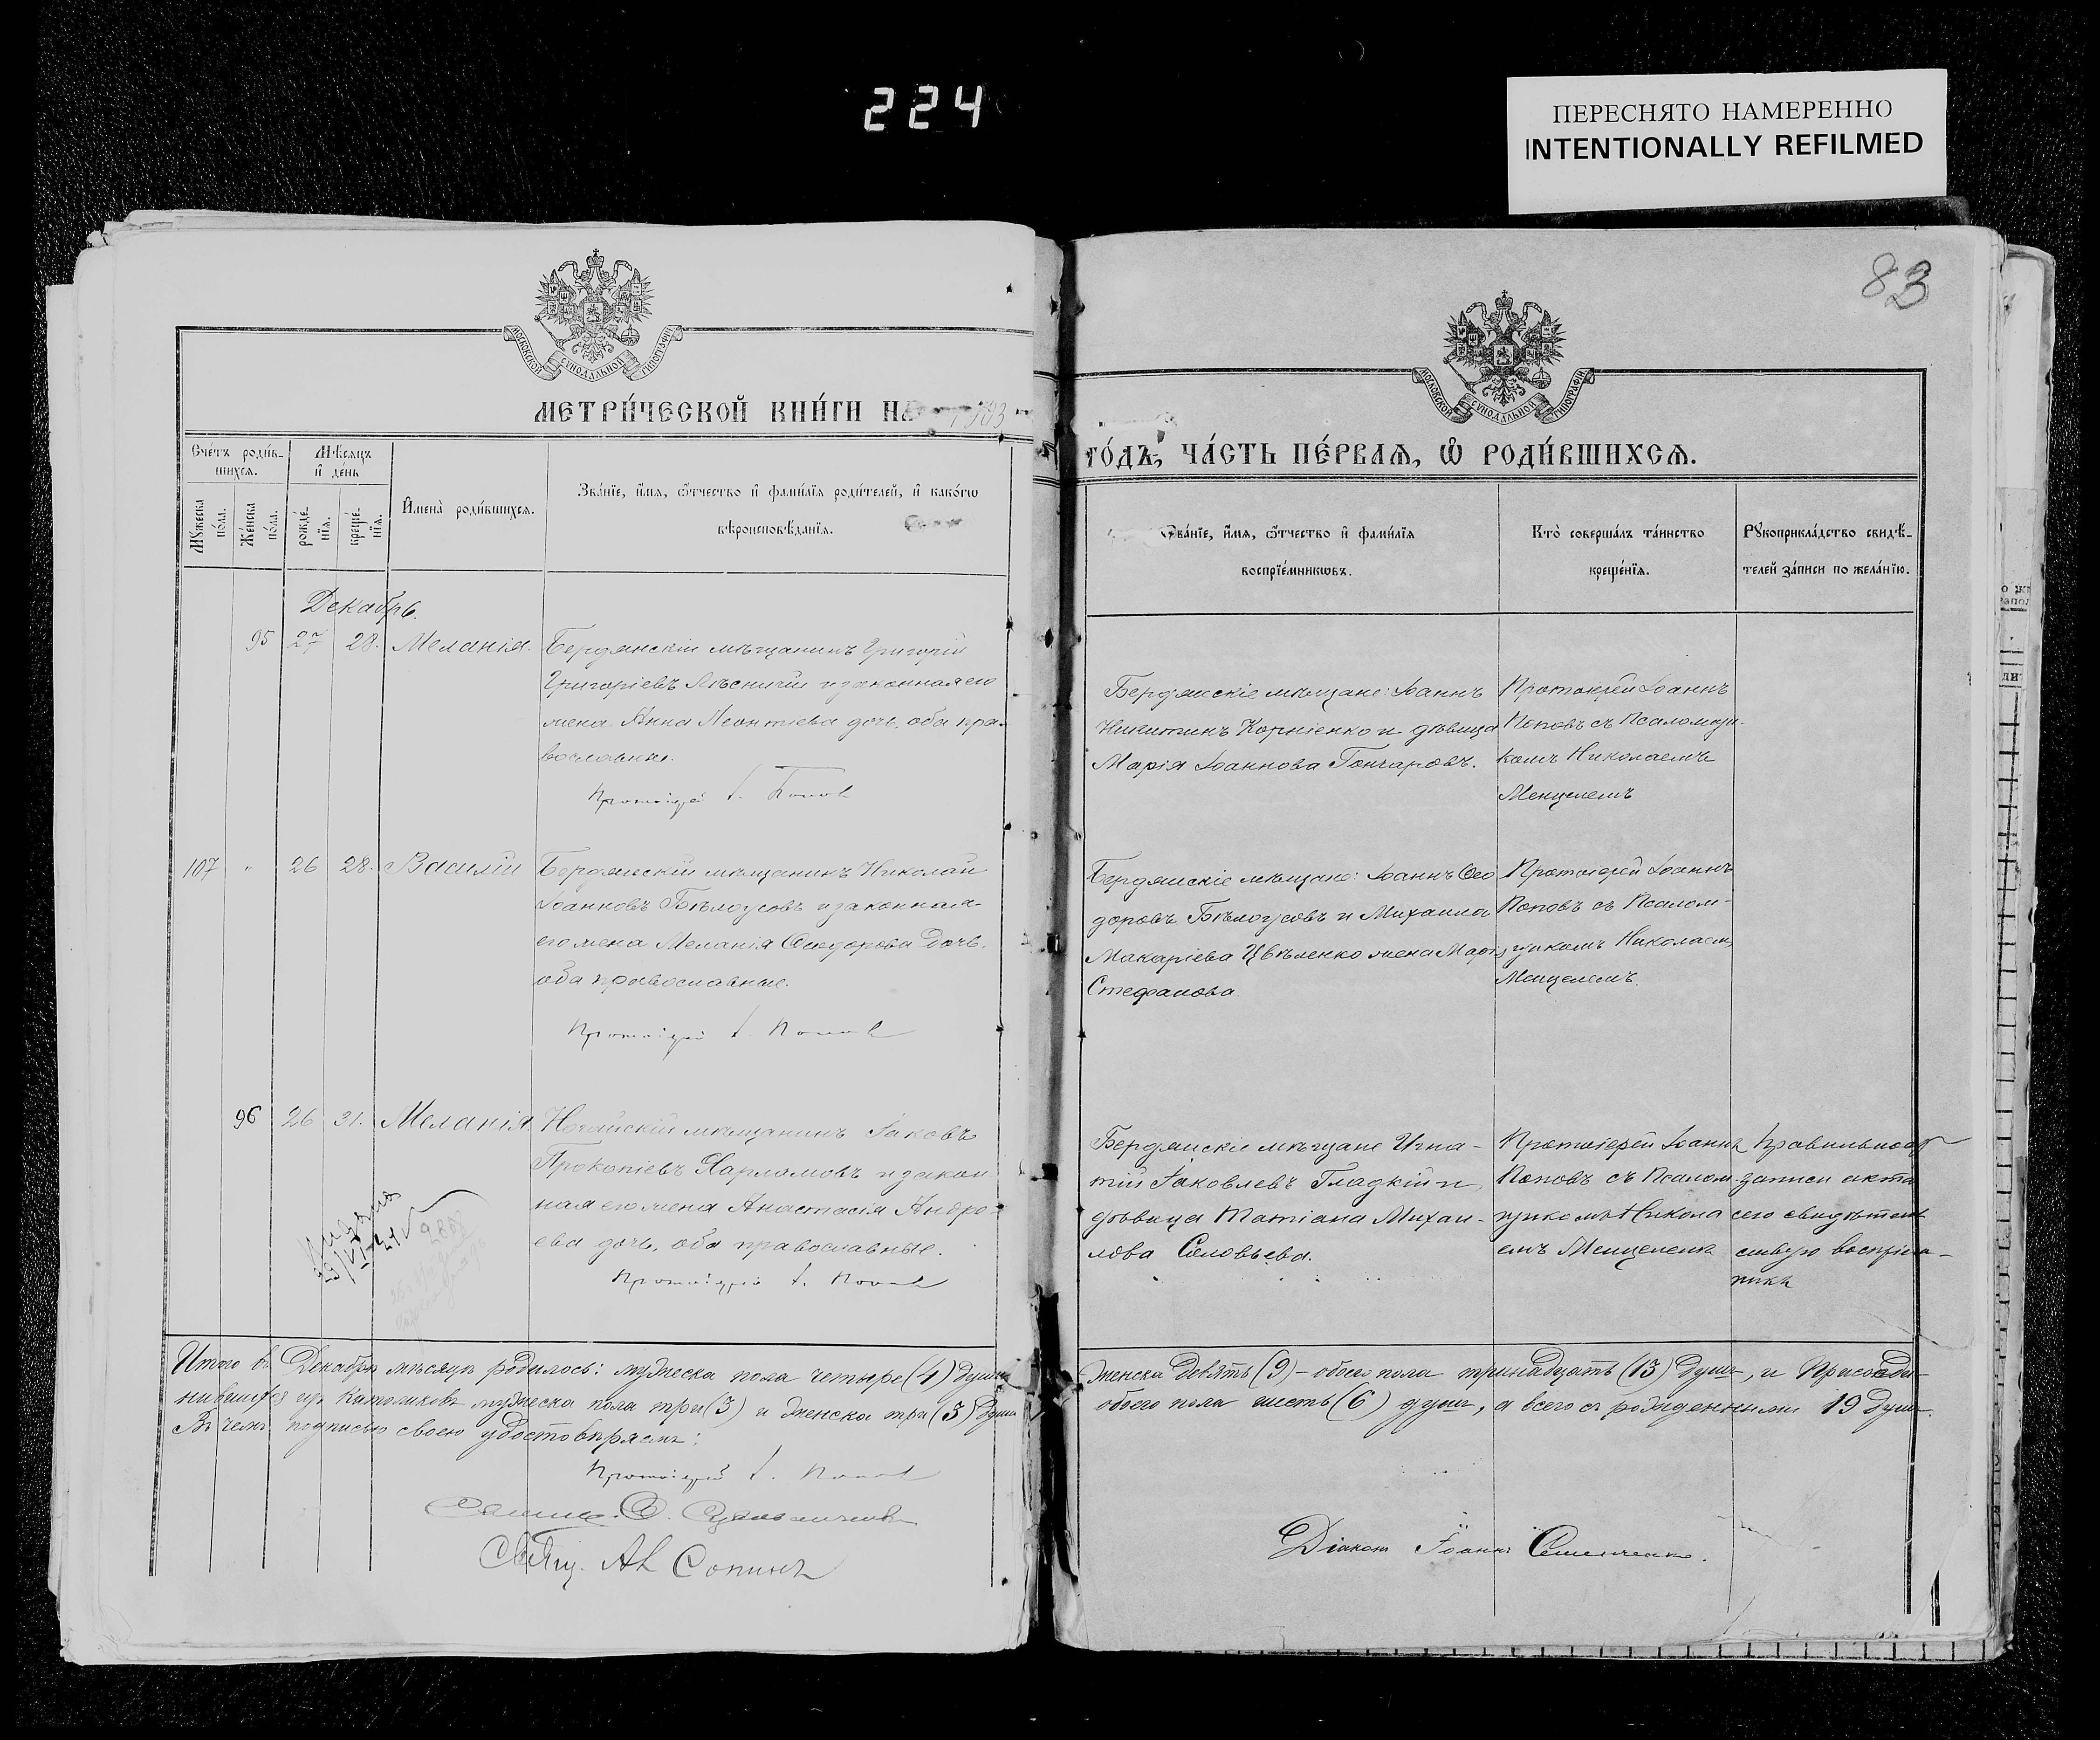 224
ПЕРЕСНЯТО НАМЕРЕННО
INTENTIONALLY REFILMED
83
МОСКОВСКОЙ СѴНОДАЛЬНОЙ ТИПОГРАФІИ
МОСКОВСКОЙ СѴНОДАЛЬНОЙ ТИПОГРАФІИ
МЕТРИ́ЧЕСКОЙ КНИ́ГИ НА 1903
ГО́ДЪ, ЧА́СТЬ ПЕ́РВАѦ, Ѡ҆ РОДИ́ВШИХСѦ.
Сче́тъ роди́в-
шихсѧ.
Мѣ́сѧцъ
и҆ де́нь
Мꙋ́жеска
по́ла.
Же́нска
по́ла.
рожде́-
нїѧ.
креще́-
нїѧ.
И҆мена̀ роди́вшихсѧ.
Зва́нїе, и҆́мѧ, ѻ҆́тчество и҆ фами́лїѧ роди́телей, и҆ како́гѡ
вѣроисповѣ́данїѧ.
Зва́нїе, и҆́мѧ, ѻ҆́тчество и҆ фами́лїѧ
воспрїе́мникѡвъ.
Кто̀ соверша́лъ та́инство
креще́нїѧ.
Рꙋкоприкла́дство свидѣ́-
телей за́писи по жела́нїю.
Декабрь.
95 27 28. Меланія.
Бердянскій мѣщанинъ Григорій
Григоріевъ Лѣсничій и законная его
жена Анна Леонтіева дочь, оба пра-
вославны.
Протоіерей І. Попов
Бердянскіе мѣщане: Іоаннъ
Никитинъ Корніенко и дѣвица
Марія Іоаннова Гончаровъ.
Протоіерей Іоаннъ
Поповъ съ Псаломщи-
комъ Николаемъ
Менцелемъ
107 " 26 28. Василій
Бердянскій мѣщанинъ Николай
Іоанновъ Бѣлоусовъ и законная
его жена Меланія Ѳеодорова дочь.
оба православные.
Протоіерей І. Попов
Бердянскіе мѣщане: Іоаннъ Ѳео
доровъ Бѣлоусовъ и Михаила
Макаріева Цвѣленко жена Марія
Стефанова.
Протоіерей Іоаннъ
Поповъ съ Псалом-
щикомъ Николаемъ
Менцелемъ.
96 26 31. Меланія
Ногайскій мѣщанинъ Іаковъ
Прокопіевъ Харламовъ и закон
ная его жена Анастасія Андре-
ева дочь, оба православные.
Протоіерей І. Попов
Бердянскіе мѣщане Игна-
тій Іаковлевъ Гладкій и
дѣвица Татіана Михаи-
лова Соловьева.
Протоіерей Іоаннъ
Поповъ съ Псалом
щикомъ Никола
емъ Менцелемъ
Правильность
записи акта
сего свидѣтель
ствую воспріем-
никъ
Итого въ Декабрѣ мѣсяцѣ родилось: мужеска пола четыре (4) души
женска девять (9) - обоего пола тринадцать (13) душъ, и Присоеди-
нившихся изъ католиковъ мужеска пола три (3) и женска три (3) души
обоего пола шесть (6) душъ, а всего съ рожденными 19 душъ.
Въ чемъ подписью своею удостовѣряемъ:
Протоіерей І. Попов
Діаконъ Іоаннъ